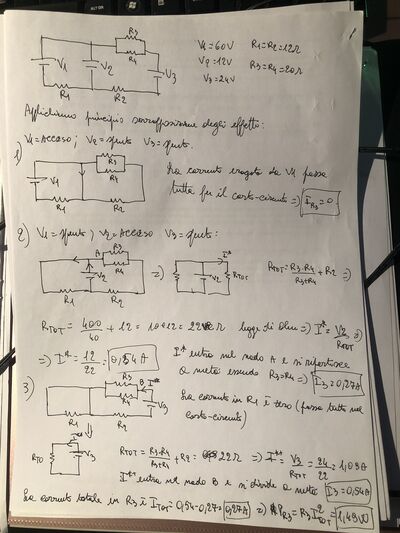 R3
R4
V1 V2 V3
R1 R2
V1=60V R1=R2=12Ω
V2=12V R3=R4=20Ω
V3=24V
Applichiamo principio sovrapposizione degli effetti:
V1=Acceso; V2=spento V3=spento.
1)
V1 R3 R4
R1 R2
La corrente erogata da V1 passa
tutta per il corto-circuito => IR3=0
2) V1=spento, V2=Acceso V3=spento:
A R3 R4 V2
R1 R2
=) I* V2 RTOT
RTOT=R3·R4/R3+R4 + R2 =)
RTOT = 400/40 + 12 = 10+12 = 22Ω legge di Ohm => I*=V2/RTOT =)
=> I* = 12/22 = 0,54A I* entra nel nodo A e si ripartisce
a metà essendo R3=R4 => I3=0,27A
3) R3 R4 B I** V3
R1 R2
La corrente in R1 è zero (passa tutta nel
corto-circuito)
V3
RTOT = R3·R4/R3+R4 + R2 = 22Ω => I** = V3/RTOT = 24/22 = 1,09A
I** entra nel nodo B e si divide a metà I3=0,54A
La corrente totale in R3 è ITOT=0,54-0,27=0,27A =) PR3=R3 I²TOT= 1,49W